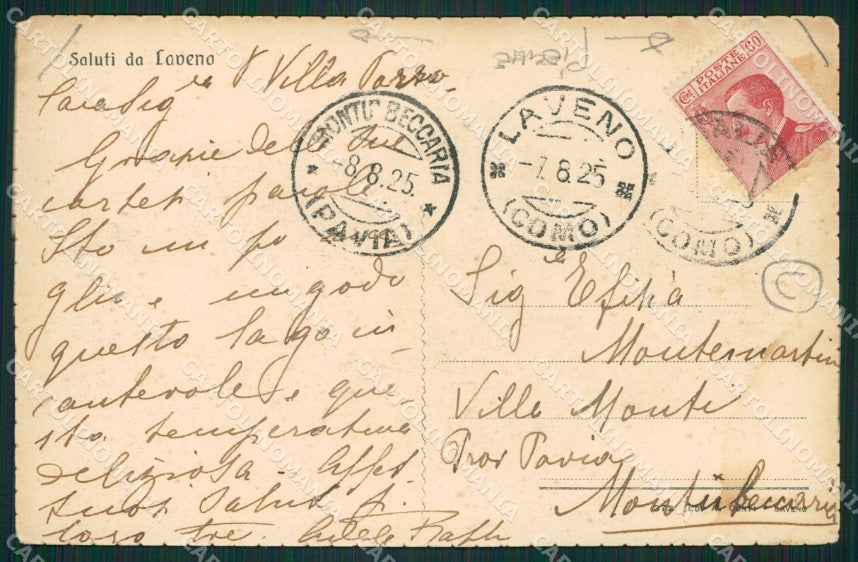 Saluti da Laveno
Villa
Cara Sig.ra
Grazie delle Sue
cortesi parole
Sto un po'
glio e mi godo
questo lago in
cantevole e que-
sta temperatura
deliziosa. Affet-
tuosi Saluti a
loro tre. Adele
MONTU' BECCARIA
-8.8.25.
(PAVIA)
LAVENO
-7.8.25
(COMO)
(COMO)
POSTE
ITALIANE
Cent. 60
C
Sig.a Efisia
Montemartini
Villa Monti
Prov Pavia
Montù Beccaria
CARTOLINOMANIA